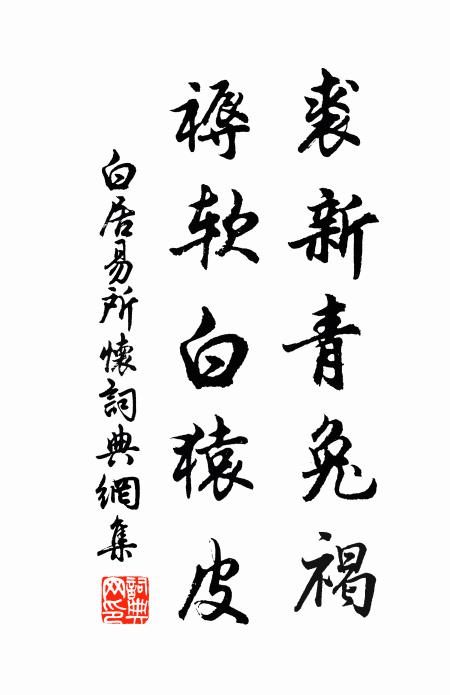 裘新青兔褐
褥软白猿皮
白居易所懷詞典網集
詞典网印